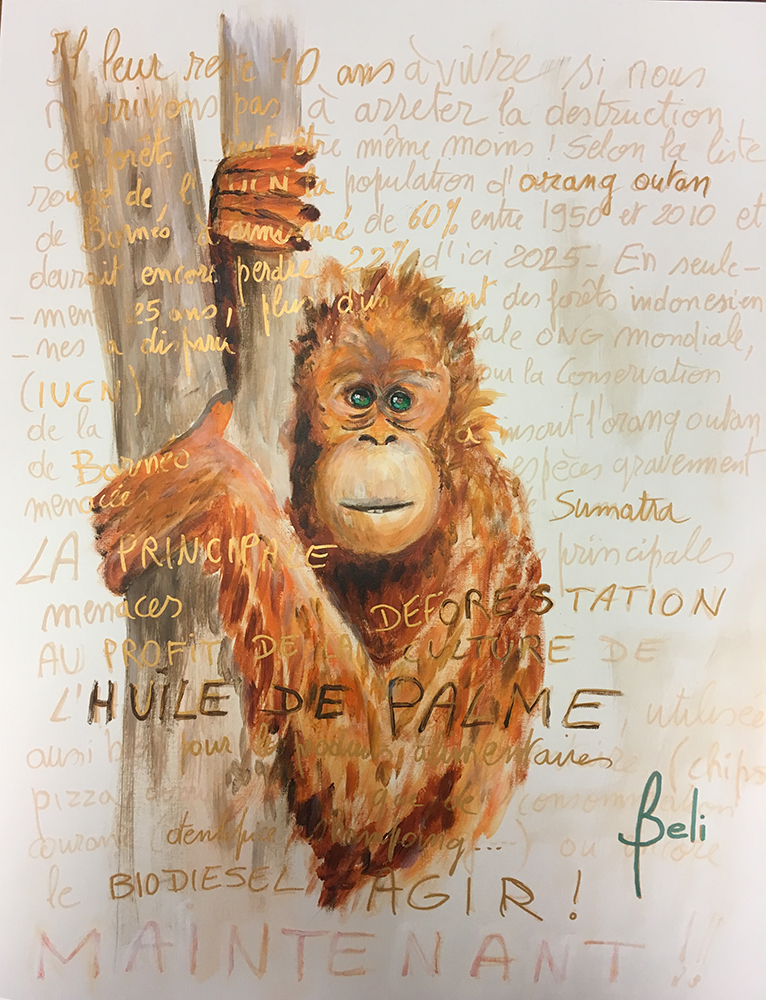 Il leur reste 10 ans à vivre si nous
n'arrivons pas à arreter la destruction
des forêts ... peut être même moins ! Selon la liste
rouge de l'IUCN la population d'orang outan
de Bornéo a diminué de 60% entre 1950 et 2010 et
devrait encore perdre 22% d'ici 2025 - En seule-
-ment 25 ans, plus d'un quart des forêts indonésien
-nes a disparu ale ONG mondiale,
(IUCN) pour la Conservation
de la a inscrit l'orang outan
de Borneo espèces gravement
menacées Sumatra
LA PRINCIPALE principales
menaces DEFORESTATION
AU PROFIT DE LA CULTURE DE
L'HUILE DE PALME, utilisée
aussi bien pour les produits alimentaires (chips
pizza de consommation
courante dentifrice, shampoing ...) ou encore
le BIODIESEL AGIR !
MAINTENANT !!
Beli